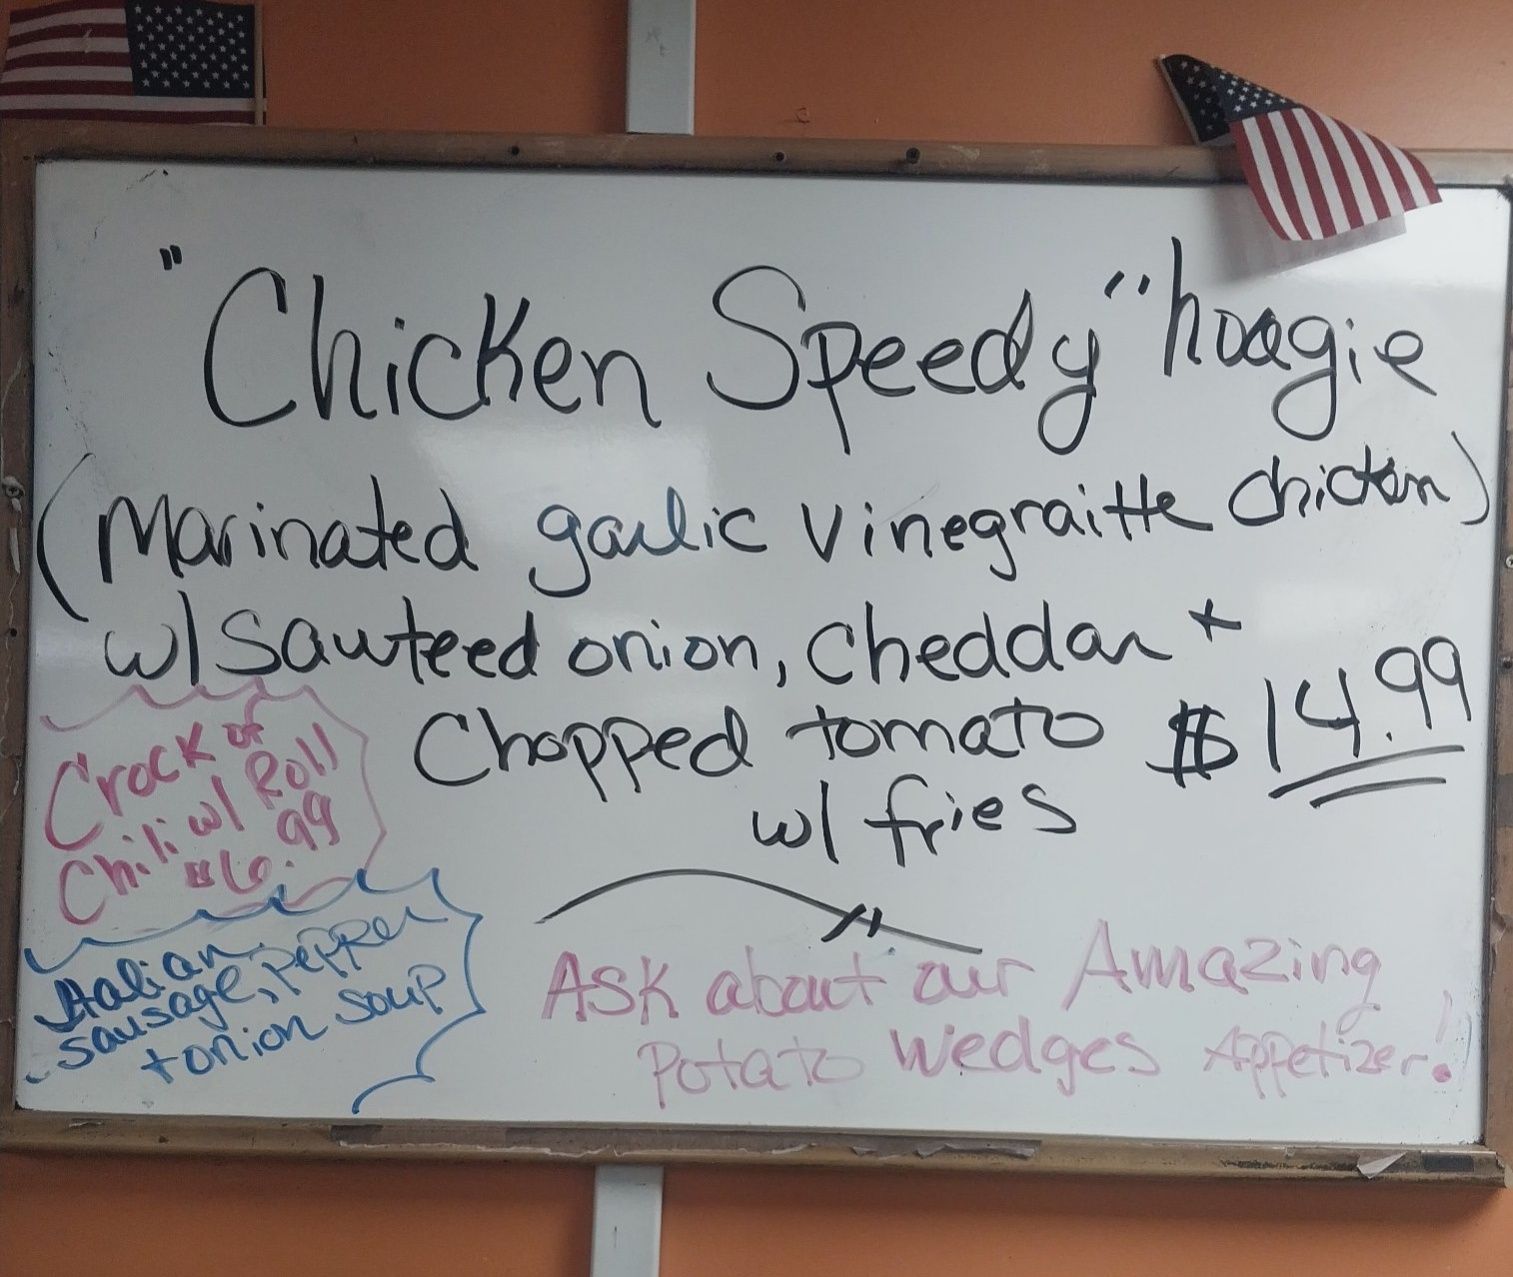 "Chicken Speedy" hoagie
(Marinated garlic vinegraitte chicken)
w/ Sauteed onion, cheddar +
Chopped tomato $14.99
w/ fries
Crock of
Chili w/ Roll
$6.99
Italian
sausage, pepper
+ onion soup
Ask about our Amazing
Potato Wedges Appetizer!